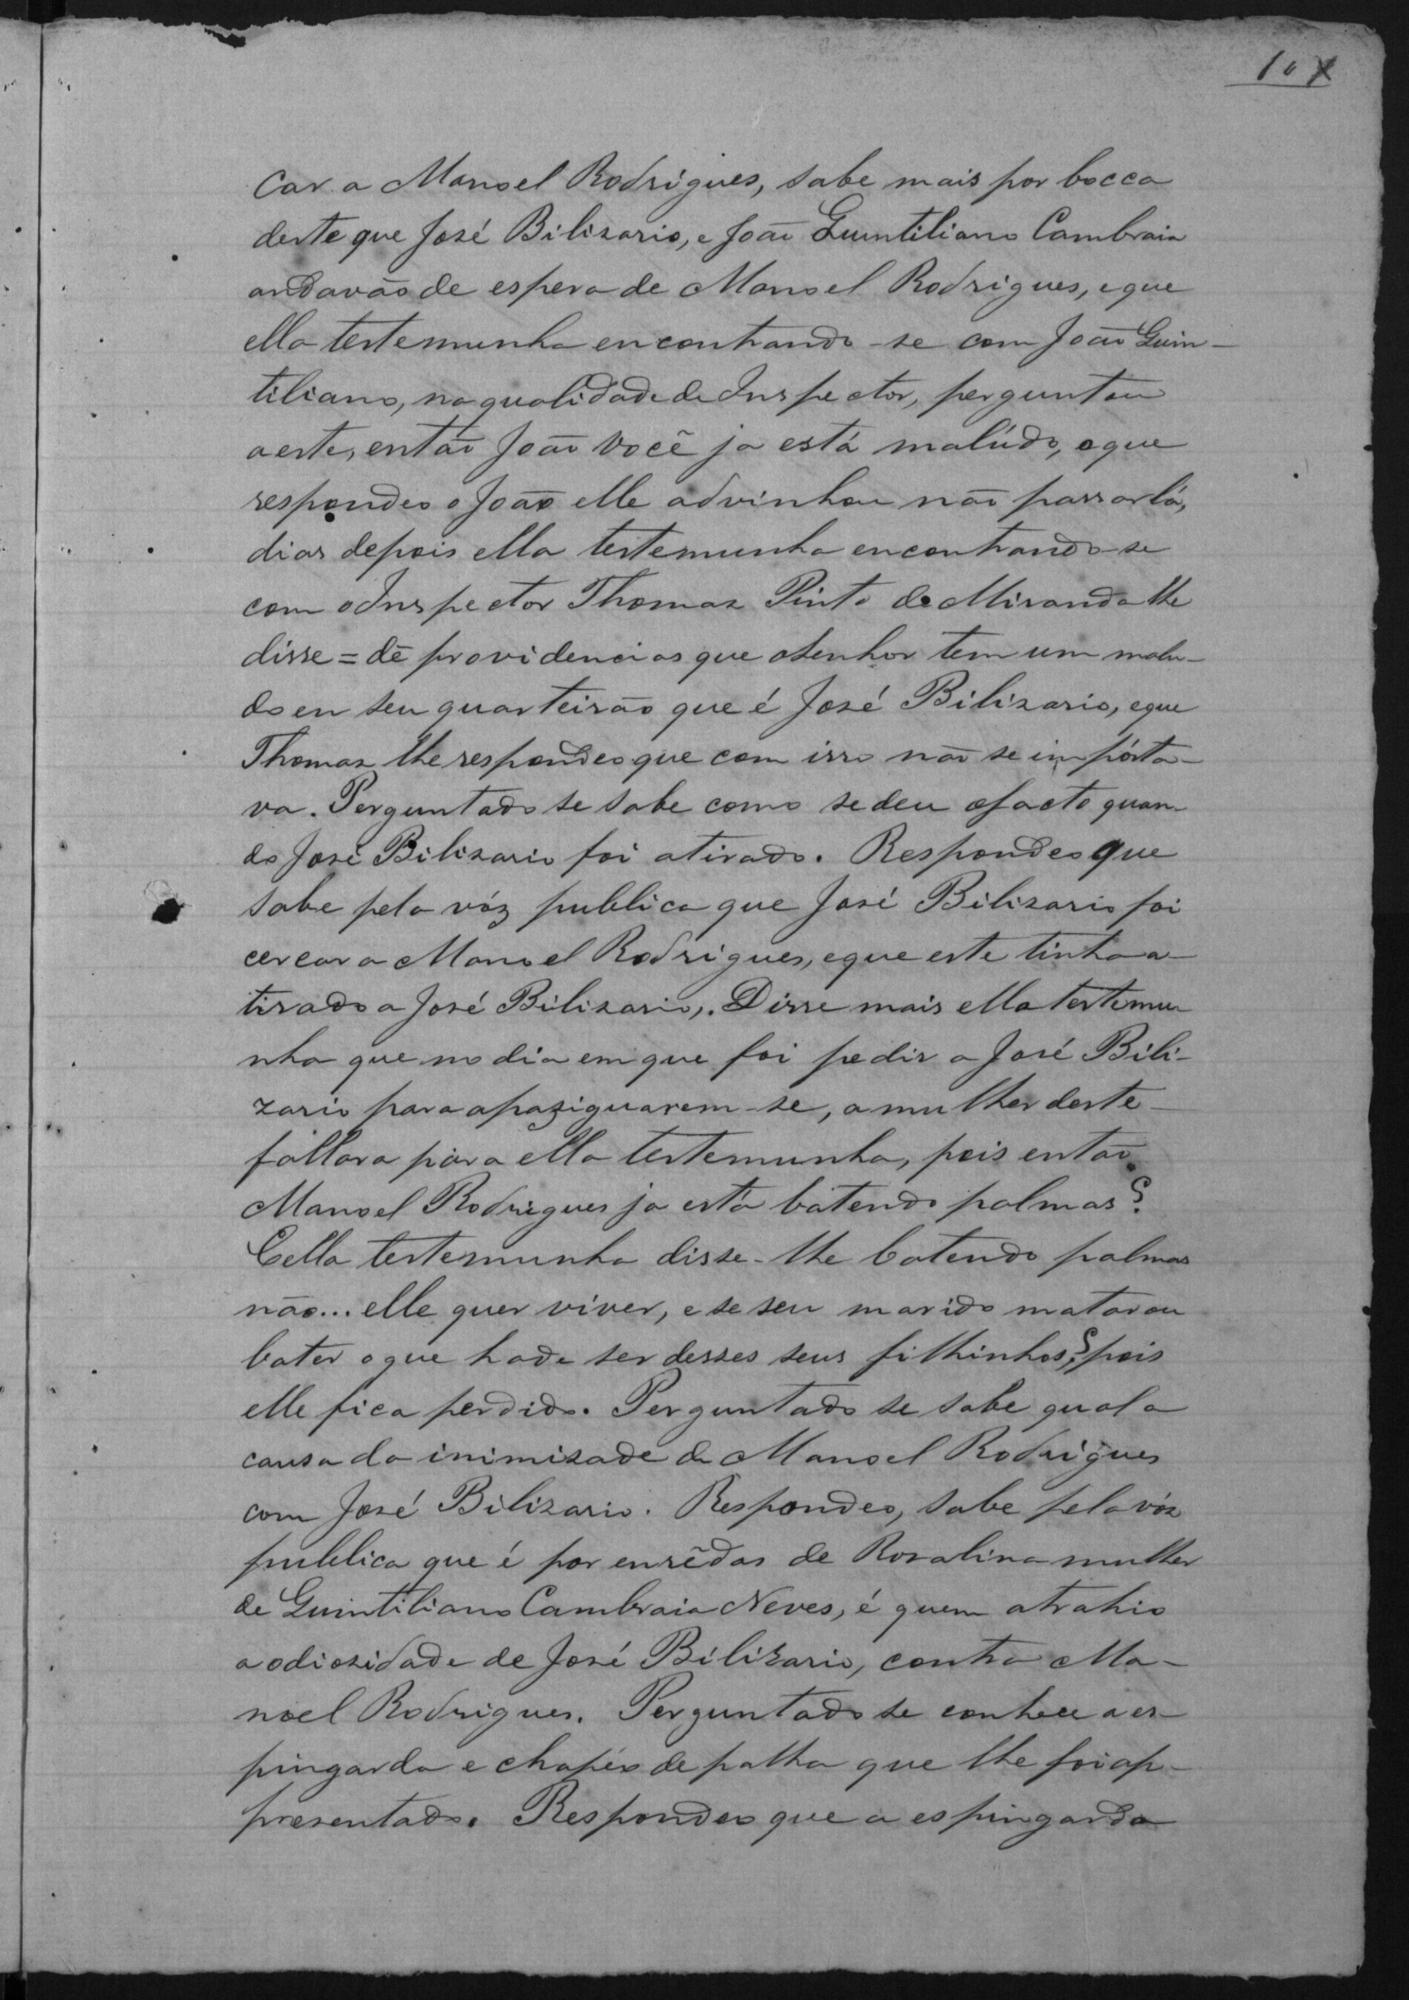 107
car a Manoel Rodrigues, sabe mais por bocca
deste que José Bilizario, e João Quintiliano Cambraia
andavão de espera de Manoel Rodrigues, e que
ella testemunha encontrando-se com João Quin-
tiliano, na qualidade de Inspector, perguntou
a este, então João você ja está malúdo, o que
respondeo o João elle advinhou não passar lá,
dias depois ella testemunha encontrando-se
com o Inspector Thomaz Pinto de Miranda lhe
disse = dê providencias que o senhor tem um malu-
do en seu quarteirão que é José Bilizario, e que
Thomaz lhe respondeo que com isso não se importa-
va. Perguntado se sabe como se deu o facto quan-
do José Bilizario foi atirado. Respondeo que
sabe pela vóz publica que José Bilizario foi
cercar a Manoel Rodrigues, e que este tinha a-
tirado a José Bilizario,. Disse mais ella testemu-
nha que no dia em que foi pedir a José Bili-
zario para apaziguarem-se, a mulher deste-
fallara para ella testemunha, pois então
Manoel Rodrigues ja está batendo palmas?
E ella testemunha disse-lhe batendo palmas
não... elle quer viver, e se seu marido matar ou
bater o que hade ser desses seus filhinhos? pois
elle fica perdido. Perguntado se sabe qual a
causa da inimizade de Manoel Rodrigues
com José Bilizario. Respondeo, sabe pela vóz
publica que é por enrêdos de Rosalina mulher
de Quintiliano Cambraia Neves, é quem atrahio
a odiozidade de José Bilizario, contra Ma-
noel Rodrigues. Perguntado se conhece a es-
pingarda e chapéo de palha que lhe foi ap-
presentado. Respondeo que a espingarda